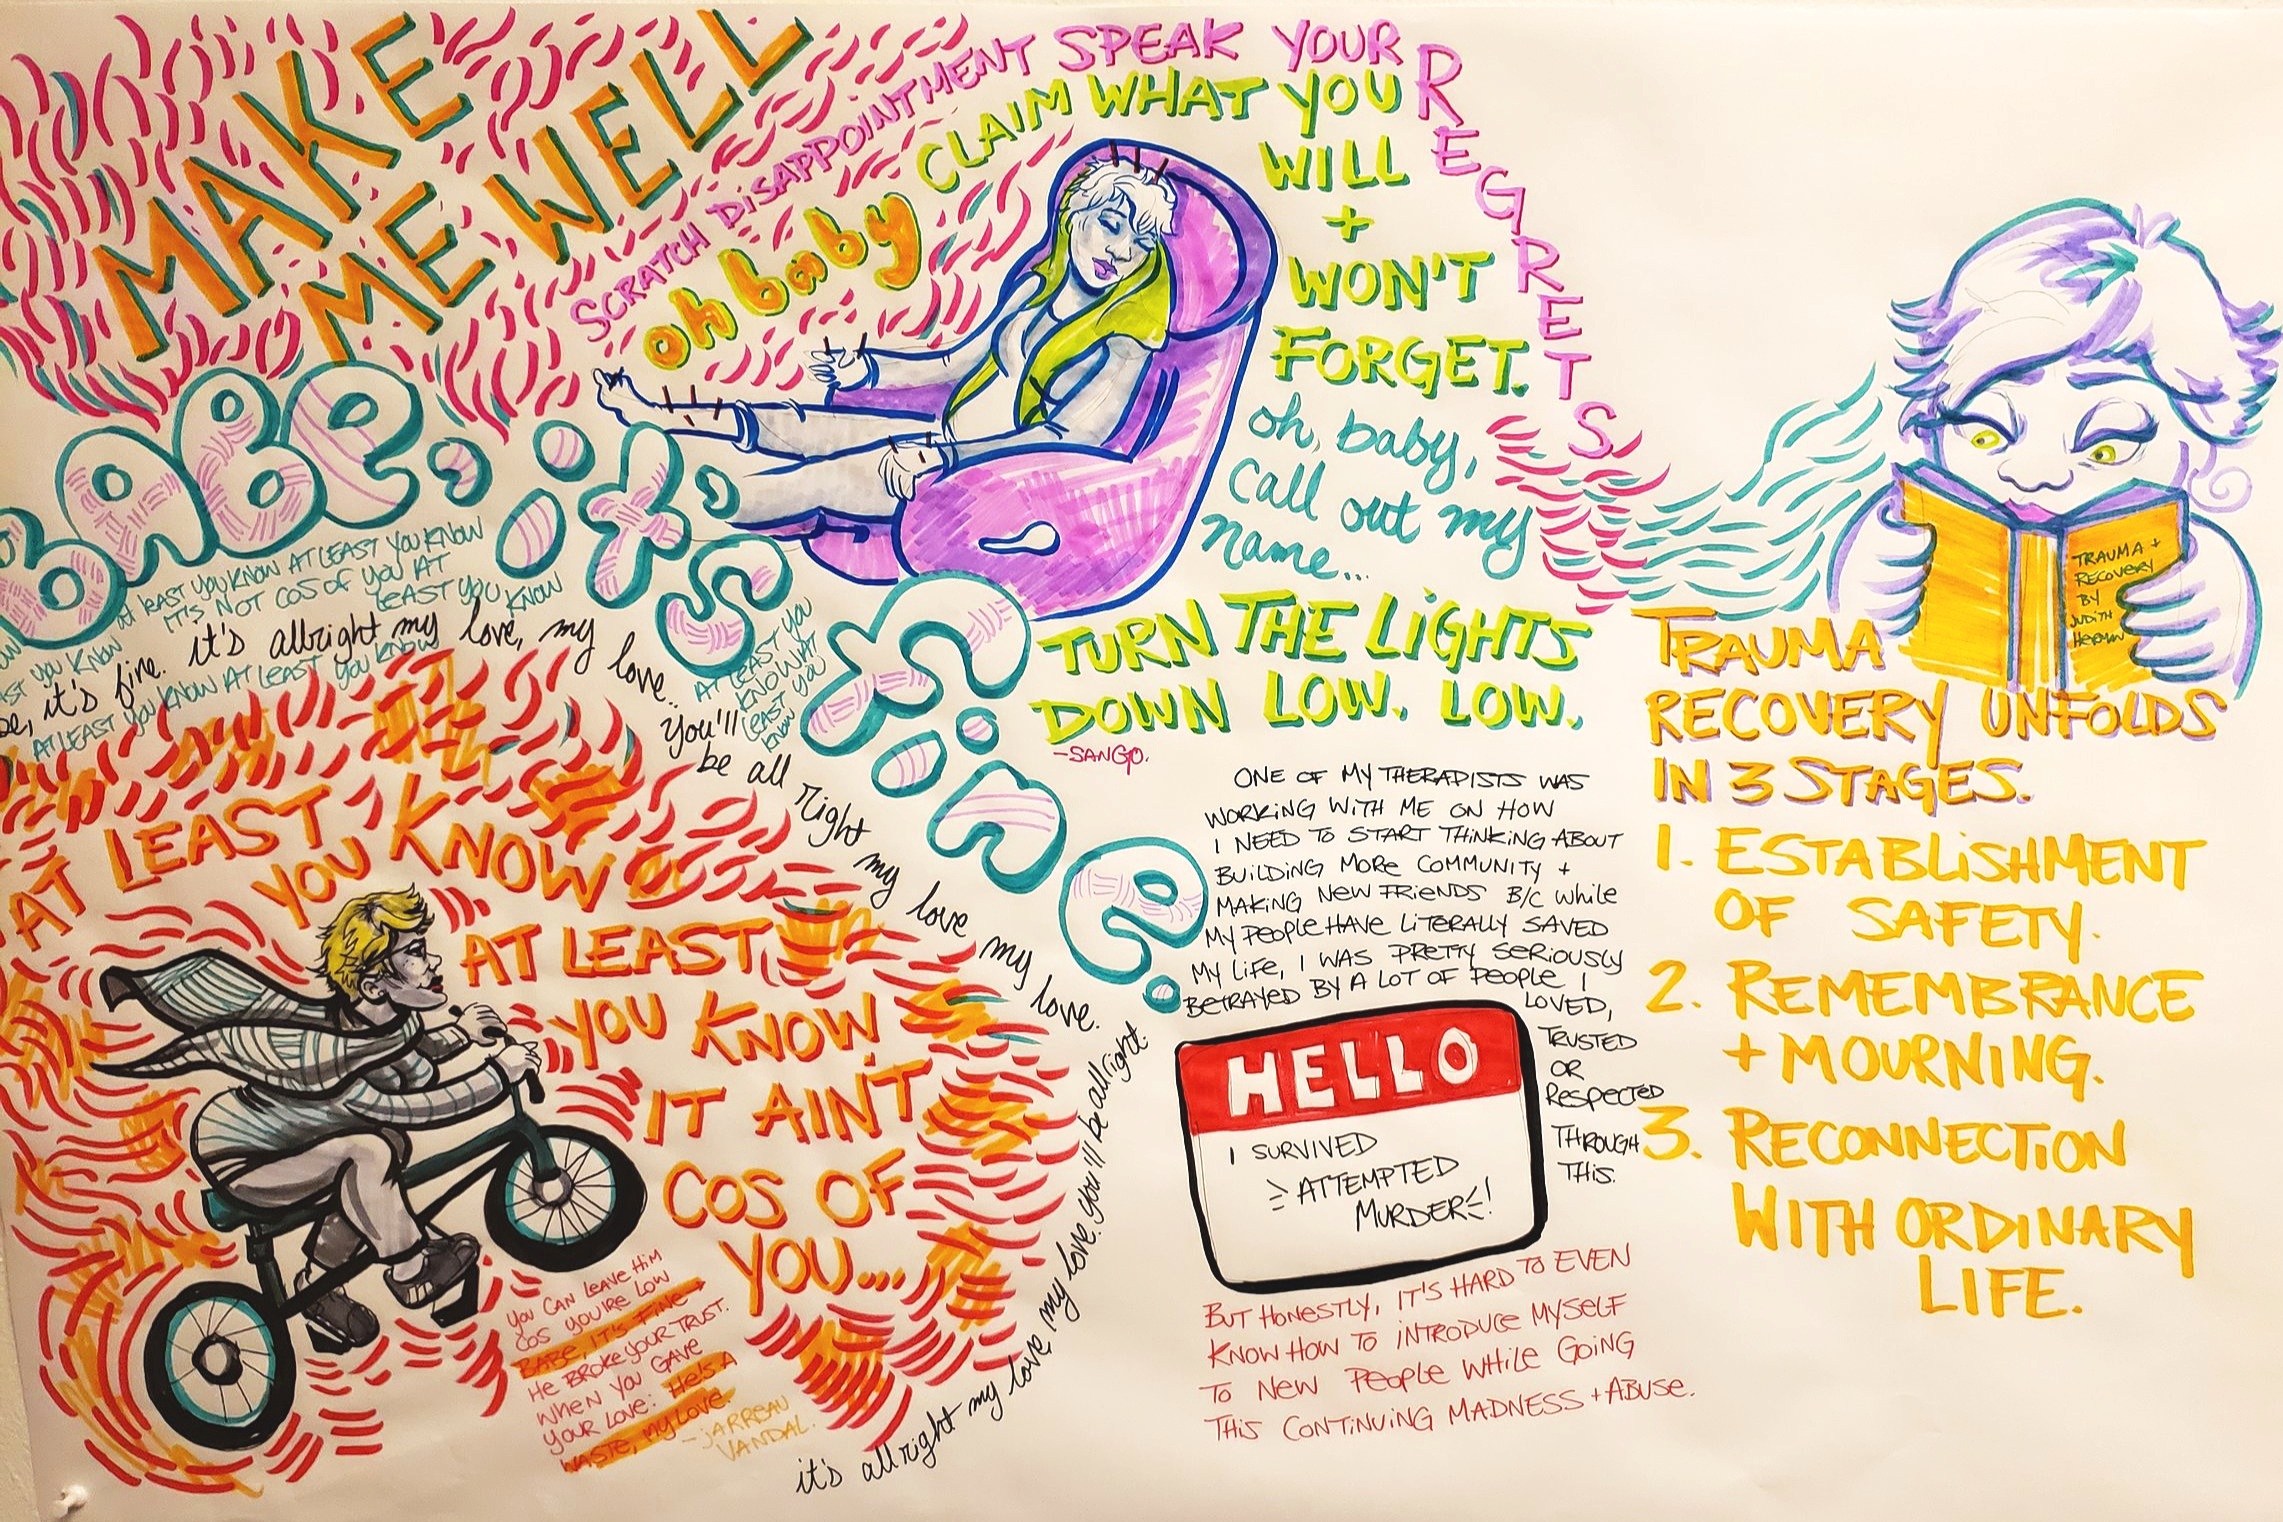 MAKE
ME WELL
SCRATCH DISAPPOINTMENT SPEAK YOUR
REGRETS
oh baby
CLAIM WHAT YOU
WILL
+
WON'T
FORGET.
oh, baby,
call out my
name...
TURN THE LIGHTS
DOWN LOW. LOW.
-SANGO.
BABE,
it's
fine.
at least you know at least you know
it's not cos of you at
least you know
it's fine. it's allright my love, my love..
at least you know at least you know
You'll
be all right my love my love.
at least you
know at
least you
know
AT LEAST
YOU KNOW
AT LEAST
YOU KNOW
IT AIN'T
COS OF
YOU...
YOU CAN LEAVE HIM
COS YOU'RE LOW
BABE, IT'S FINE
HE BROKE YOUR TRUST.
WHEN YOU GAVE
YOUR LOVE: HE'S A
WASTE, MY LOVE.
-JARREAU
VANDAL.
it's allright my love, my love, my love. you'll be allright.
ONE OF MY THERAPISTS WAS
WORKING WITH ME ON HOW
I NEED TO START THINKING ABOUT
BUILDING MORE COMMUNITY +
MAKING NEW FRIENDS B/C WHILE
MY PEOPLE HAVE LITERALLY SAVED
MY LIFE, I WAS PRETTY SERIOUSLY
BETRAYED BY A LOT OF PEOPLE I
LOVED,
TRUSTED
OR
RESPECTED
THROUGH
THIS.
HELLO
I SURVIVED
ATTEMPTED
MURDER!
BUT HONESTLY, IT'S HARD TO EVEN
KNOW HOW TO INTRODUCE MYSELF
TO NEW PEOPLE WHILE GOING
THIS CONTINUING MADNESS + ABUSE.
TRAUMA +
RECOVERY
BY
JUDITH
HERMAN
TRAUMA
RECOVERY UNFOLDS
IN 3 STAGES.
1. ESTABLISHMENT
OF SAFETY.
2. REMEMBRANCE
+ MOURNING.
3. RECONNECTION
WITH ORDINARY
LIFE.